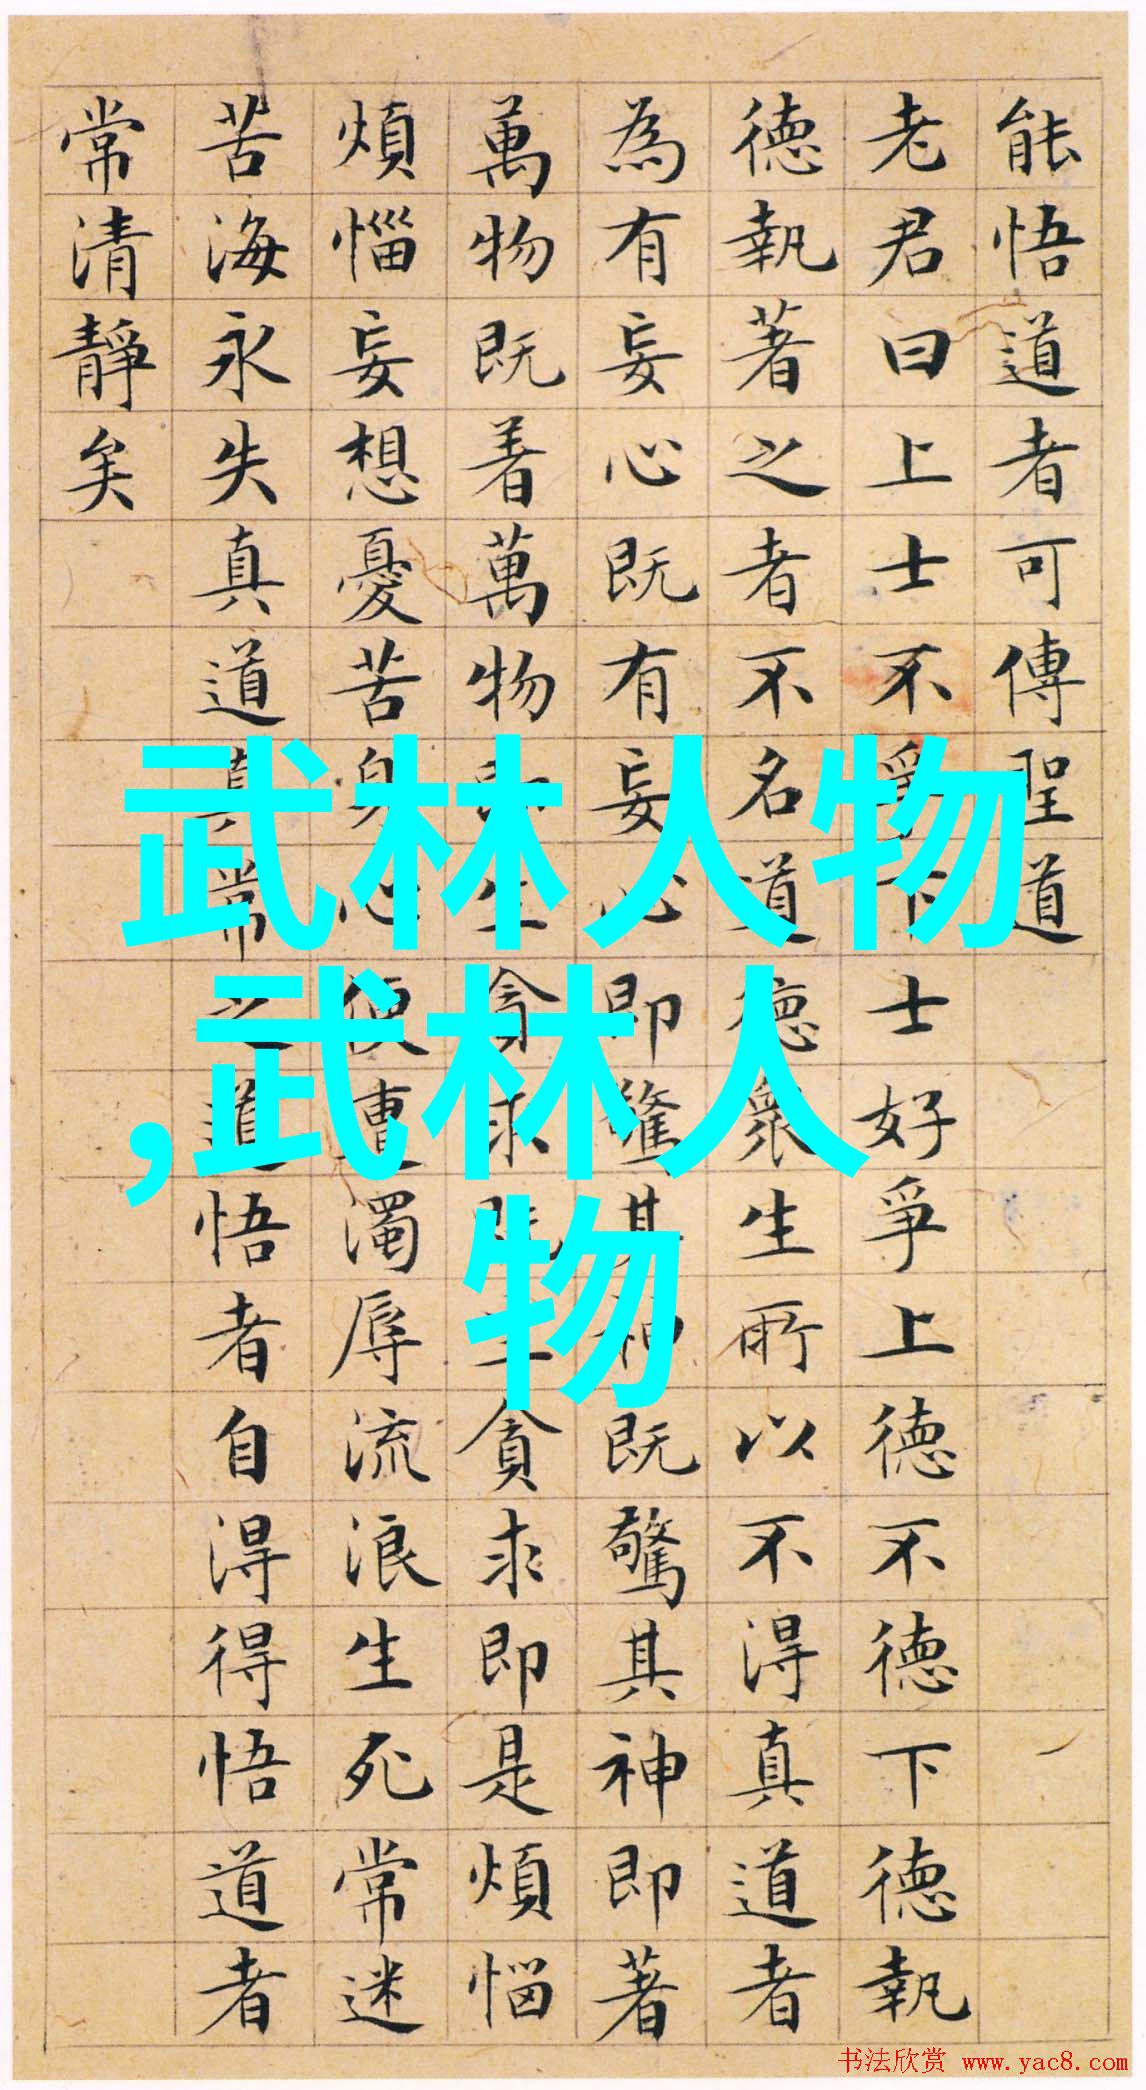 能悟道者可傳聖道
老君曰上士不爭下士好爭上德不德下德執
德執著之者不名道德衆生所以不得真道者
為有妄心既有妄心即驚其神既驚其神即著
萬物既着萬物即生貪求既生貪求即是煩惱
煩惱妄想憂苦身心便遭濁辱流浪生死常迷
苦海永失真道真常之道悟者自得得悟道者
常清靜矣
武林人物
,武林人
物
书法欣赏 www.yac8.com